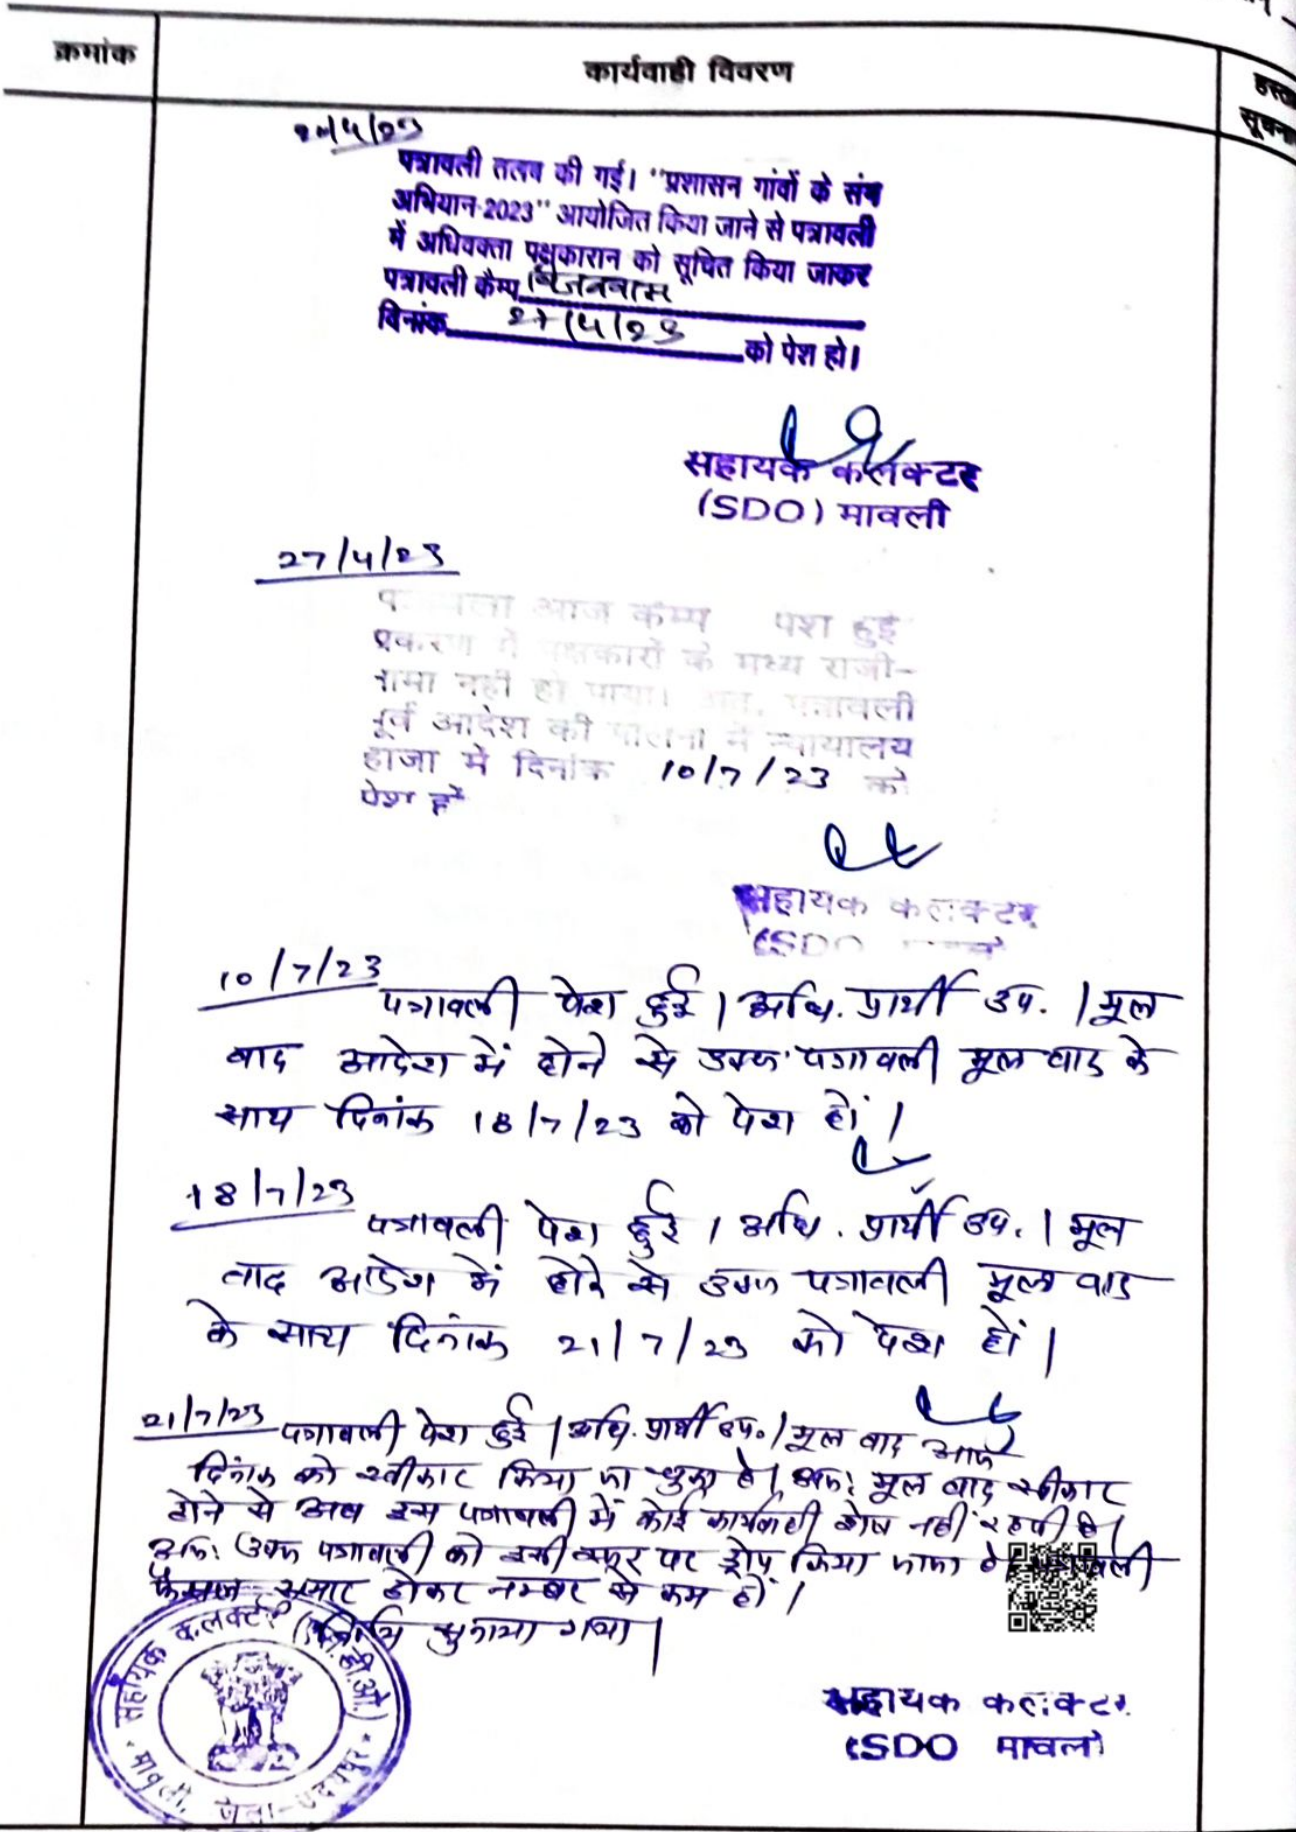 क्रमांक
कार्यवाही विवरण
हस्ता
सूचना
पत्रावली तलब की गई। "प्रशासन गांवों के संग
अभियान-2023" आयोजित किया जाने से पत्रावली
में अधिवक्ता पक्षकारान को सूचित किया जाकर
पत्रावली कैम्प
दिनांक 27/4/23 को पेश हो।
सहायक कलक्टर
(SDO) मावली
27/4/23
आज कैम्प पेश हुई
प्रकरण में पक्षकारों के मध्य राजी-
नामा नहीं हो पाया। अतः पत्रावली
पूर्व आदेश की पालना में न्यायालय
हाजा में दिनांक 10/7/23 को
पेश हो
सहायक कलक्टर
(SDO
10/7/23
पत्रावली पेश हुई। अधि. प्रार्थी उप.। मूल
वाद आदेश में होने से उक्त पत्रावली मूल वाद के
साथ दिनांक 18/7/23 को पेश हों।
18/7/23
पत्रावली पेश हुई। अधि. प्रार्थी उप.। मूल
वाद आदेश में होने से उक्त पत्रावली मूल वाद
के साथ दिनांक 21/7/23 को पेश हों।
21/7/23 पत्रावली पेश हुई। अधि. प्रार्थी उप.। मूल वाद आज
दिनांक को स्वीकार किया जा चुका है। अतः मूल वाद स्वीकार
होने से अब इस पत्रावली में कोई कार्यवाही शेष नहीं रहती है।
अतः उक्त पत्रावली को इसी स्तर पर ड्रोप किया जाता है। पत्रावली
फैसल शुमार होकर नम्बर से कम हों।
सुनाया गया।
सहायक कलक्टर (एस.डी.ओ.)
मावली, जिला-उदयपुर
सहायक कलक्टर
(SDO मावली